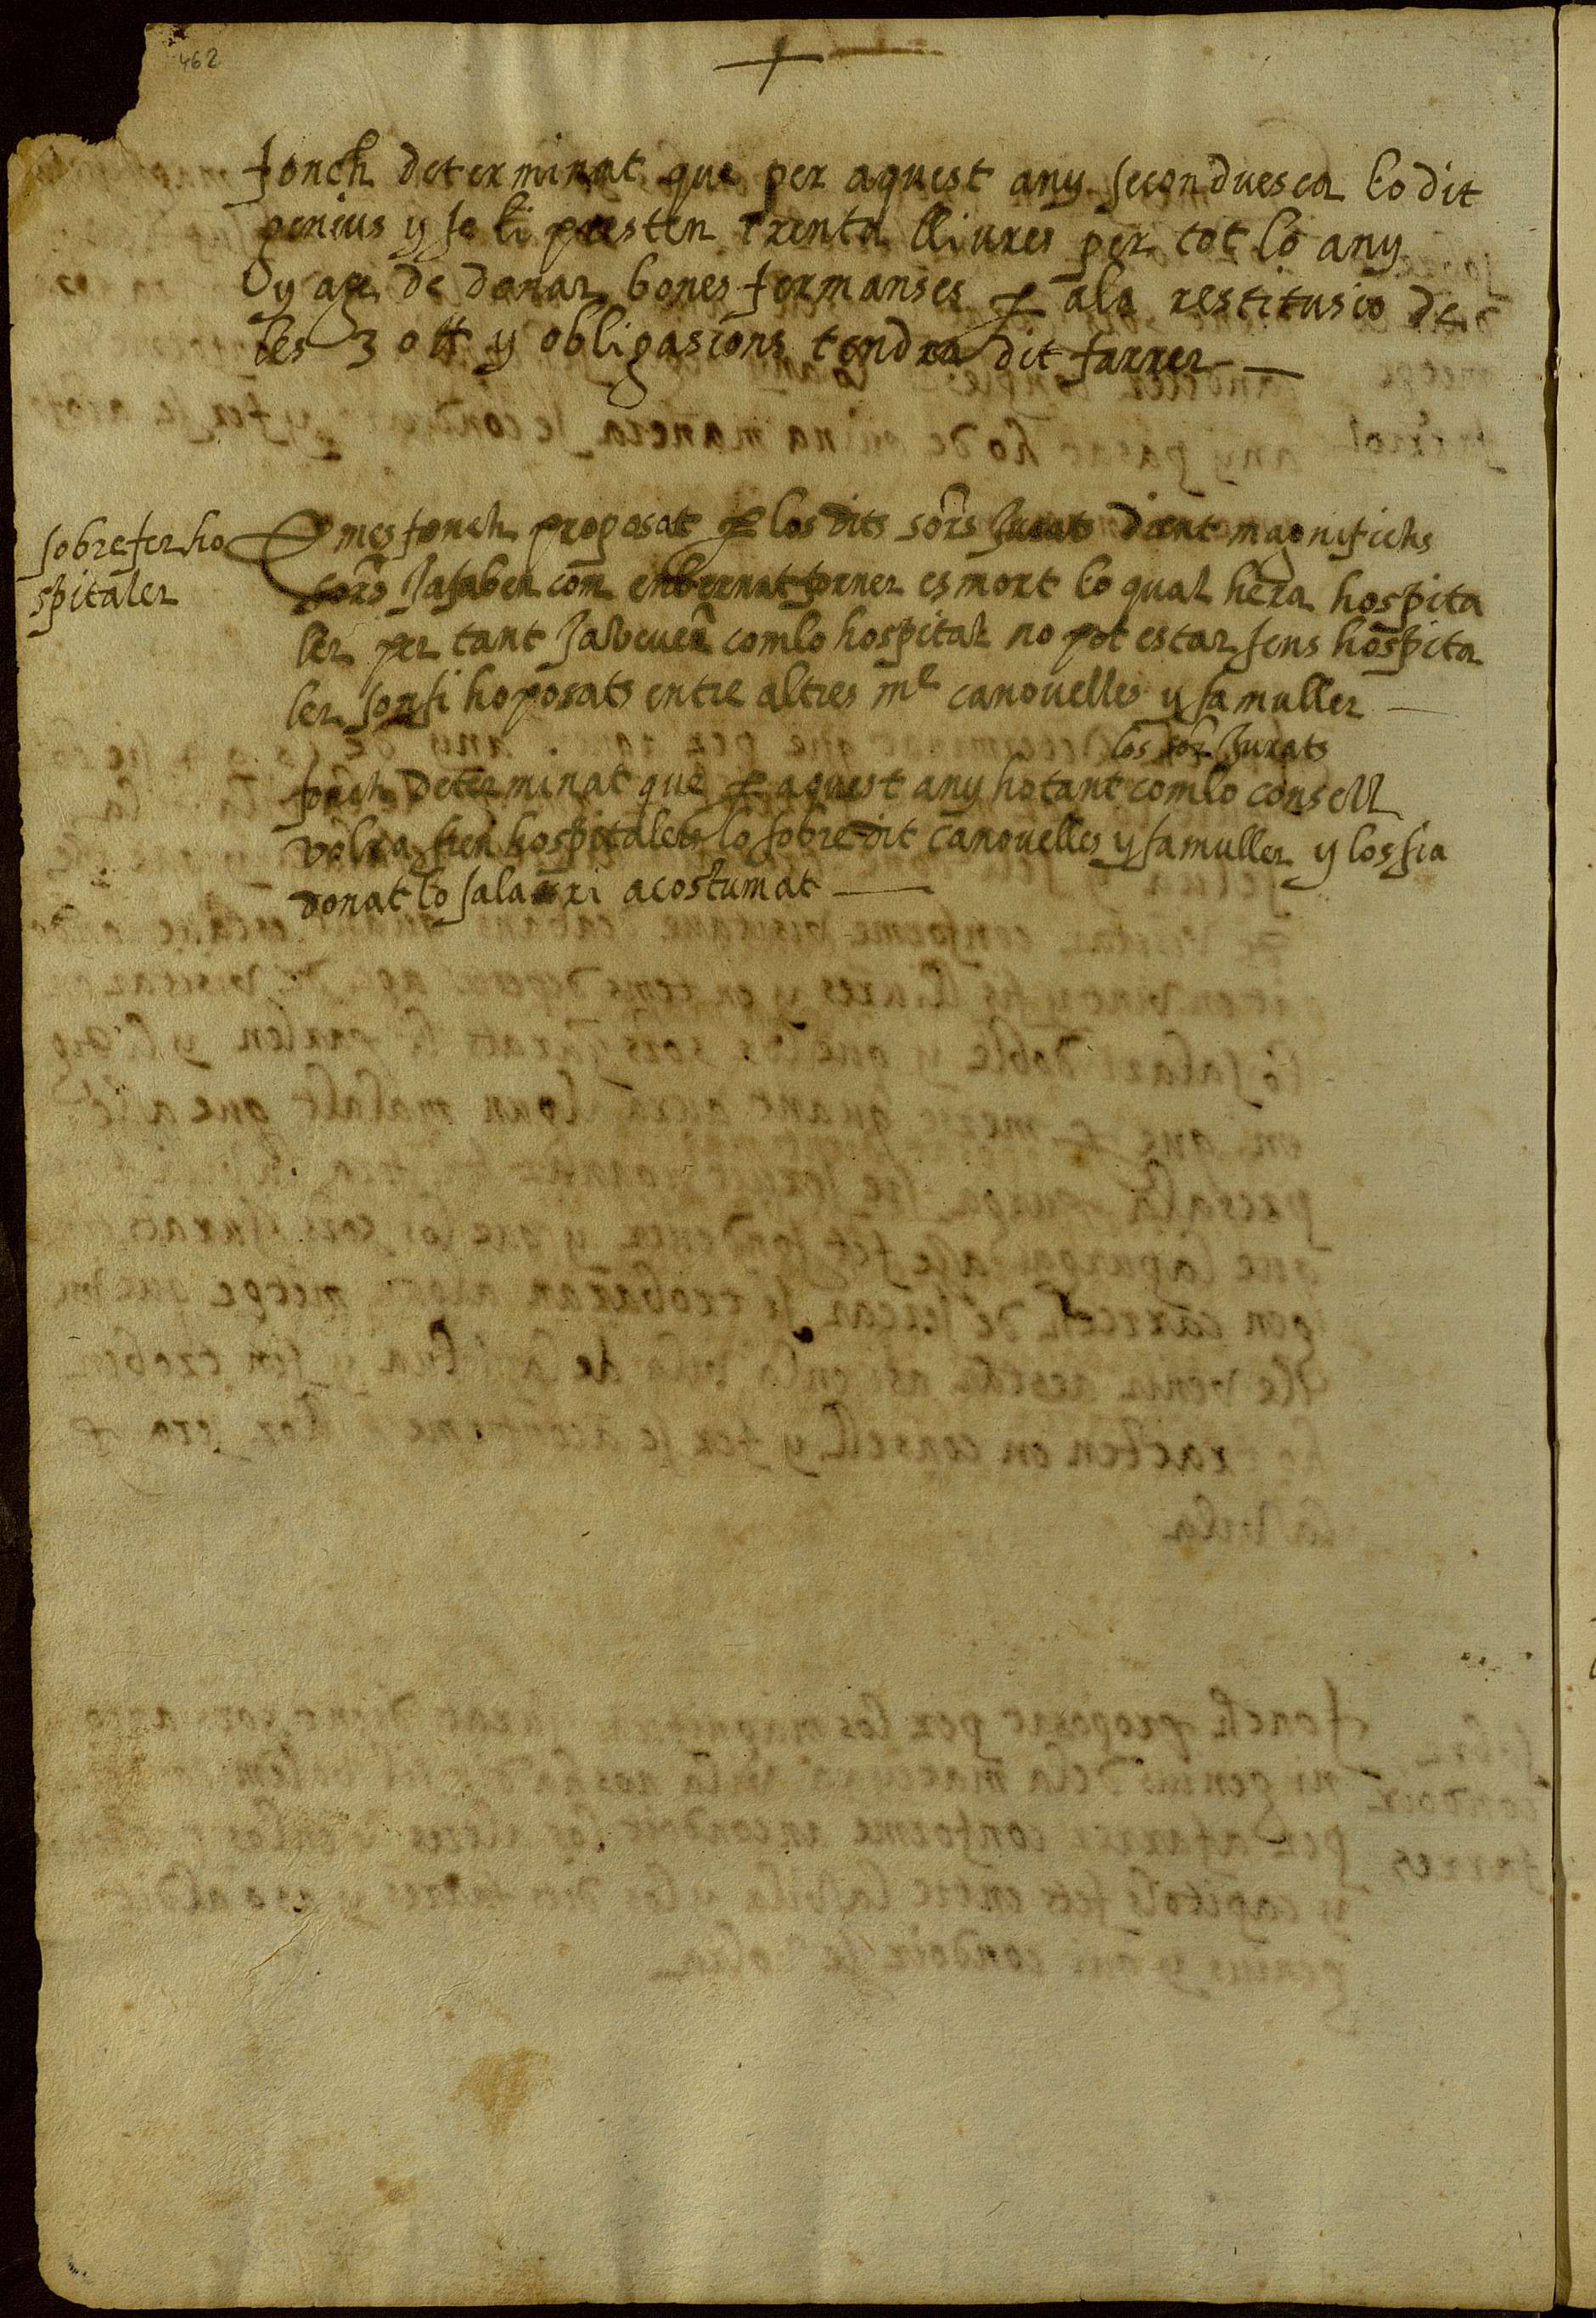 462
fonch determinat que per aquest any se conduesca lo dit
genius y se li presten trenta lliures per tot lo any
y age de donar bones fermanses p ala restitusio de
les 30 ll y obligasions tendra dit farrer
sobre fer ho
spitaler
mes fonch proposat p los dits sors Jurats dient magnifichs
sors Ja saben com en bernat forner es mort lo qual hera hospita
ler per tant Ja veuen com lo hospital no pot estar sens hospita
ler sonsi hoposats entre altres mº canovelles y sa muller
los sors Jurats
fonch determinat que p aquest any ho tant com lo consell
volra sien hospitalers lo sobredit canovelles y sa muller y los sia
donat lo salari acostumat